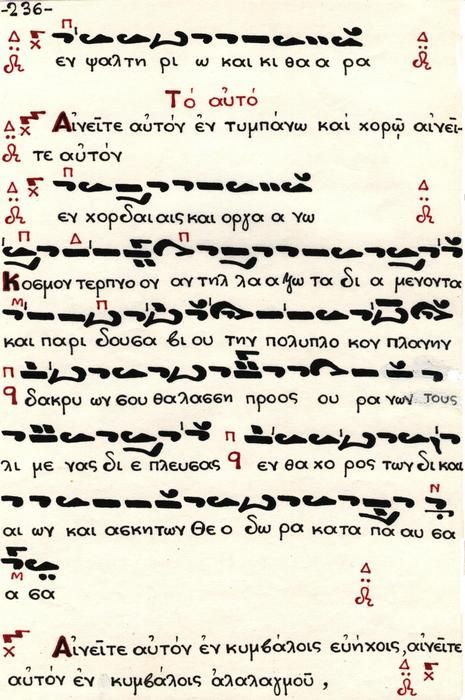 -236-
εν ψαλτη ρι ω και κι θα α ρα
Τό αὐτό
Αἰνεῖτε αὐτόν ἐν τυμπάνω καί χορῷ αἰνεῖ-
τε αὐτόν
εν χορδαι αις και οργα α νω
Κοσμου τερπνο ου αν τηλ λα α ξω τα δι α μενοντα
και παρι δουσα βι ου την πολυπλο κον πλανην
δακρυ ων σου θαλασση προος ου ρα νων τους
λι με νας δι ε πλευσας εν θα χο ρος των δι και
αι ων και ασκητων Θε ο δω ρα κατα πα αυ σα
α σα
Αἰνεῖτε αὐτόν ἐν κυμβάλοις εὐήχοις, αἰνεῖτε
αὐτόν ἐν κυμβάλοις ἀλαλαγμοῦ,